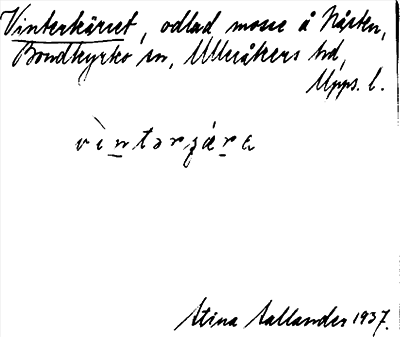 Vinterkärret, odlad mosse å Nåsten,
Bondkyrko sn, Ulleråkers hd,
Upps. l.
vintərçæra
Stina Sallander 1937.